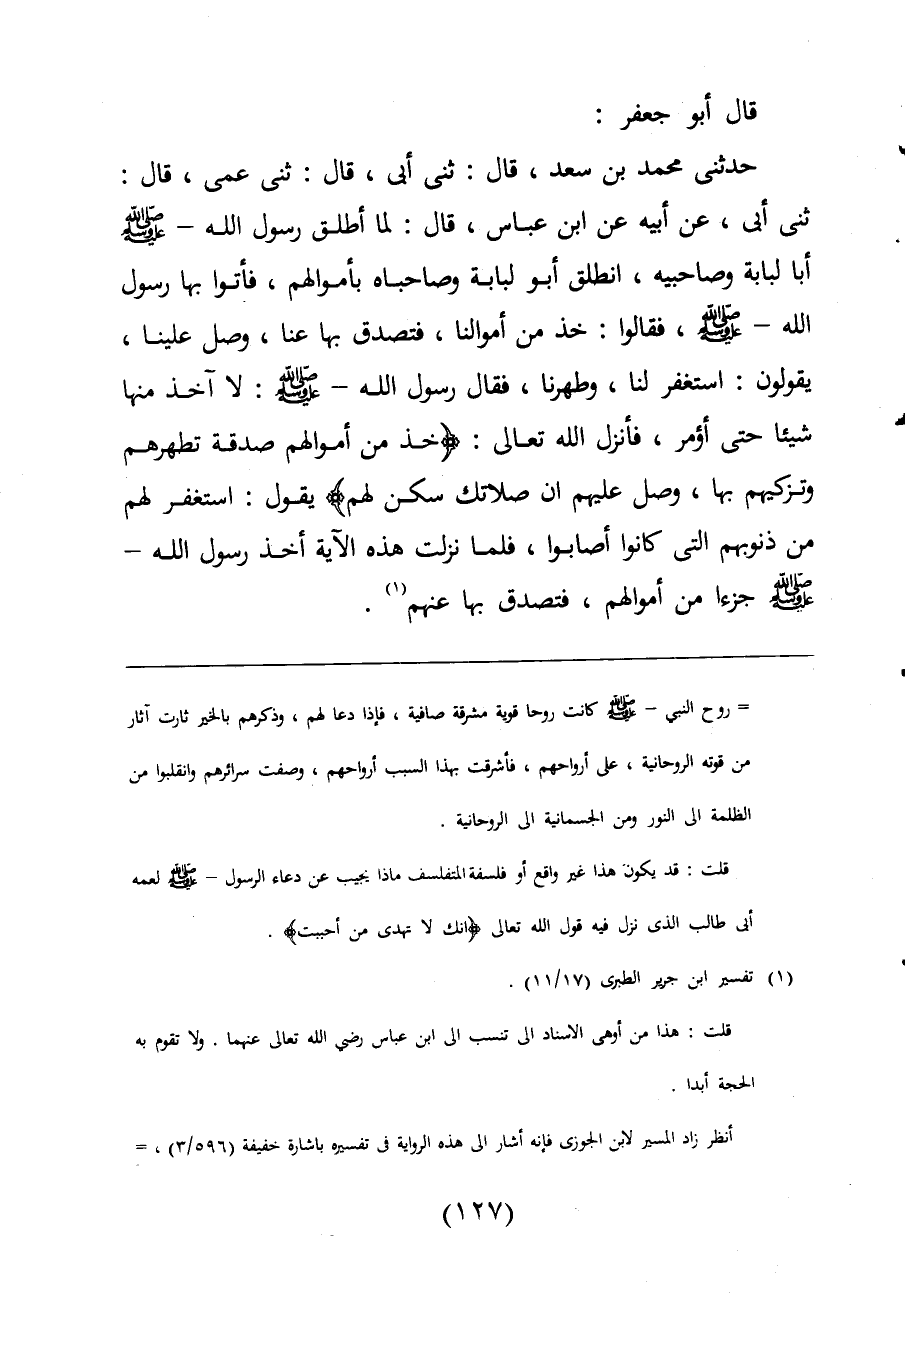 قال أبو جعفر :
حدثنى محمد بن سعد ، قال : ثنى أبى ، قال : ثنى عمى ، قال :
ثنى أبى ، عن أبيه عن ابن عباس ، قال : لما أطلق رسول الله – ﷺ
أبا لبابة وصاحبيه ، انطلق أبو لبابة وصاحباه بأموالهم ، فأتوا بها رسول
الله – ﷺ ، فقالوا : خذ من أموالنا ، فتصدق بها عنا ، وصل علينا ،
يقولون : استغفر لنا ، وطهرنا ، فقال رسول الله – ﷺ : لا آخذ منها
شيئا حتى أؤمر ، فأنزل الله تعالى : ﴿خذ من أموالهم صدقة تطهرهم
وتزكيهم بها ، وصل عليهم ان صلاتك سكن لهم﴾ يقول : استغفر لهم
من ذنوبهم التى كانوا أصابوا ، فلما نزلت هذه الآية أخذ رسول الله –
ﷺ جزءا من أموالهم ، فتصدق بها عنهم(١) .
= روح النبي – ﷺ كانت روحا قوية مشرقة صافية ، فإذا دعا لهم ، وذكرهم بالخير ثارت آثار
من قوته الروحانية ، على أرواحهم ، فأشرقت بهذا السبب أرواحهم ، وصفت سرائرهم وانقلبوا من
الظلمة الى النور ومن الجسمانية الى الروحانية .
قلت : قد يكون هذا غير واقع أو فلسفة المتفلسف ماذا يجيب عن دعاء الرسول – ﷺ لعمه
أبى طالب الذى نزل فيه قول الله تعالى ﴿انك لا تهدى من أحببت﴾ .
(١) تفسير ابن جرير الطبرى (١١/١٧) .
قلت : هذا من أوهى الاسناد الى تنسب الى ابن عباس رضي الله تعالى عنهما . ولا تقوم به
الحجة أبدا .
أنظر زاد المسير لابن الجوزى فإنه أشار الى هذه الرواية فى تفسيره باشارة خفيفة (٣/٥٩٦) ، =
(١٢٧)